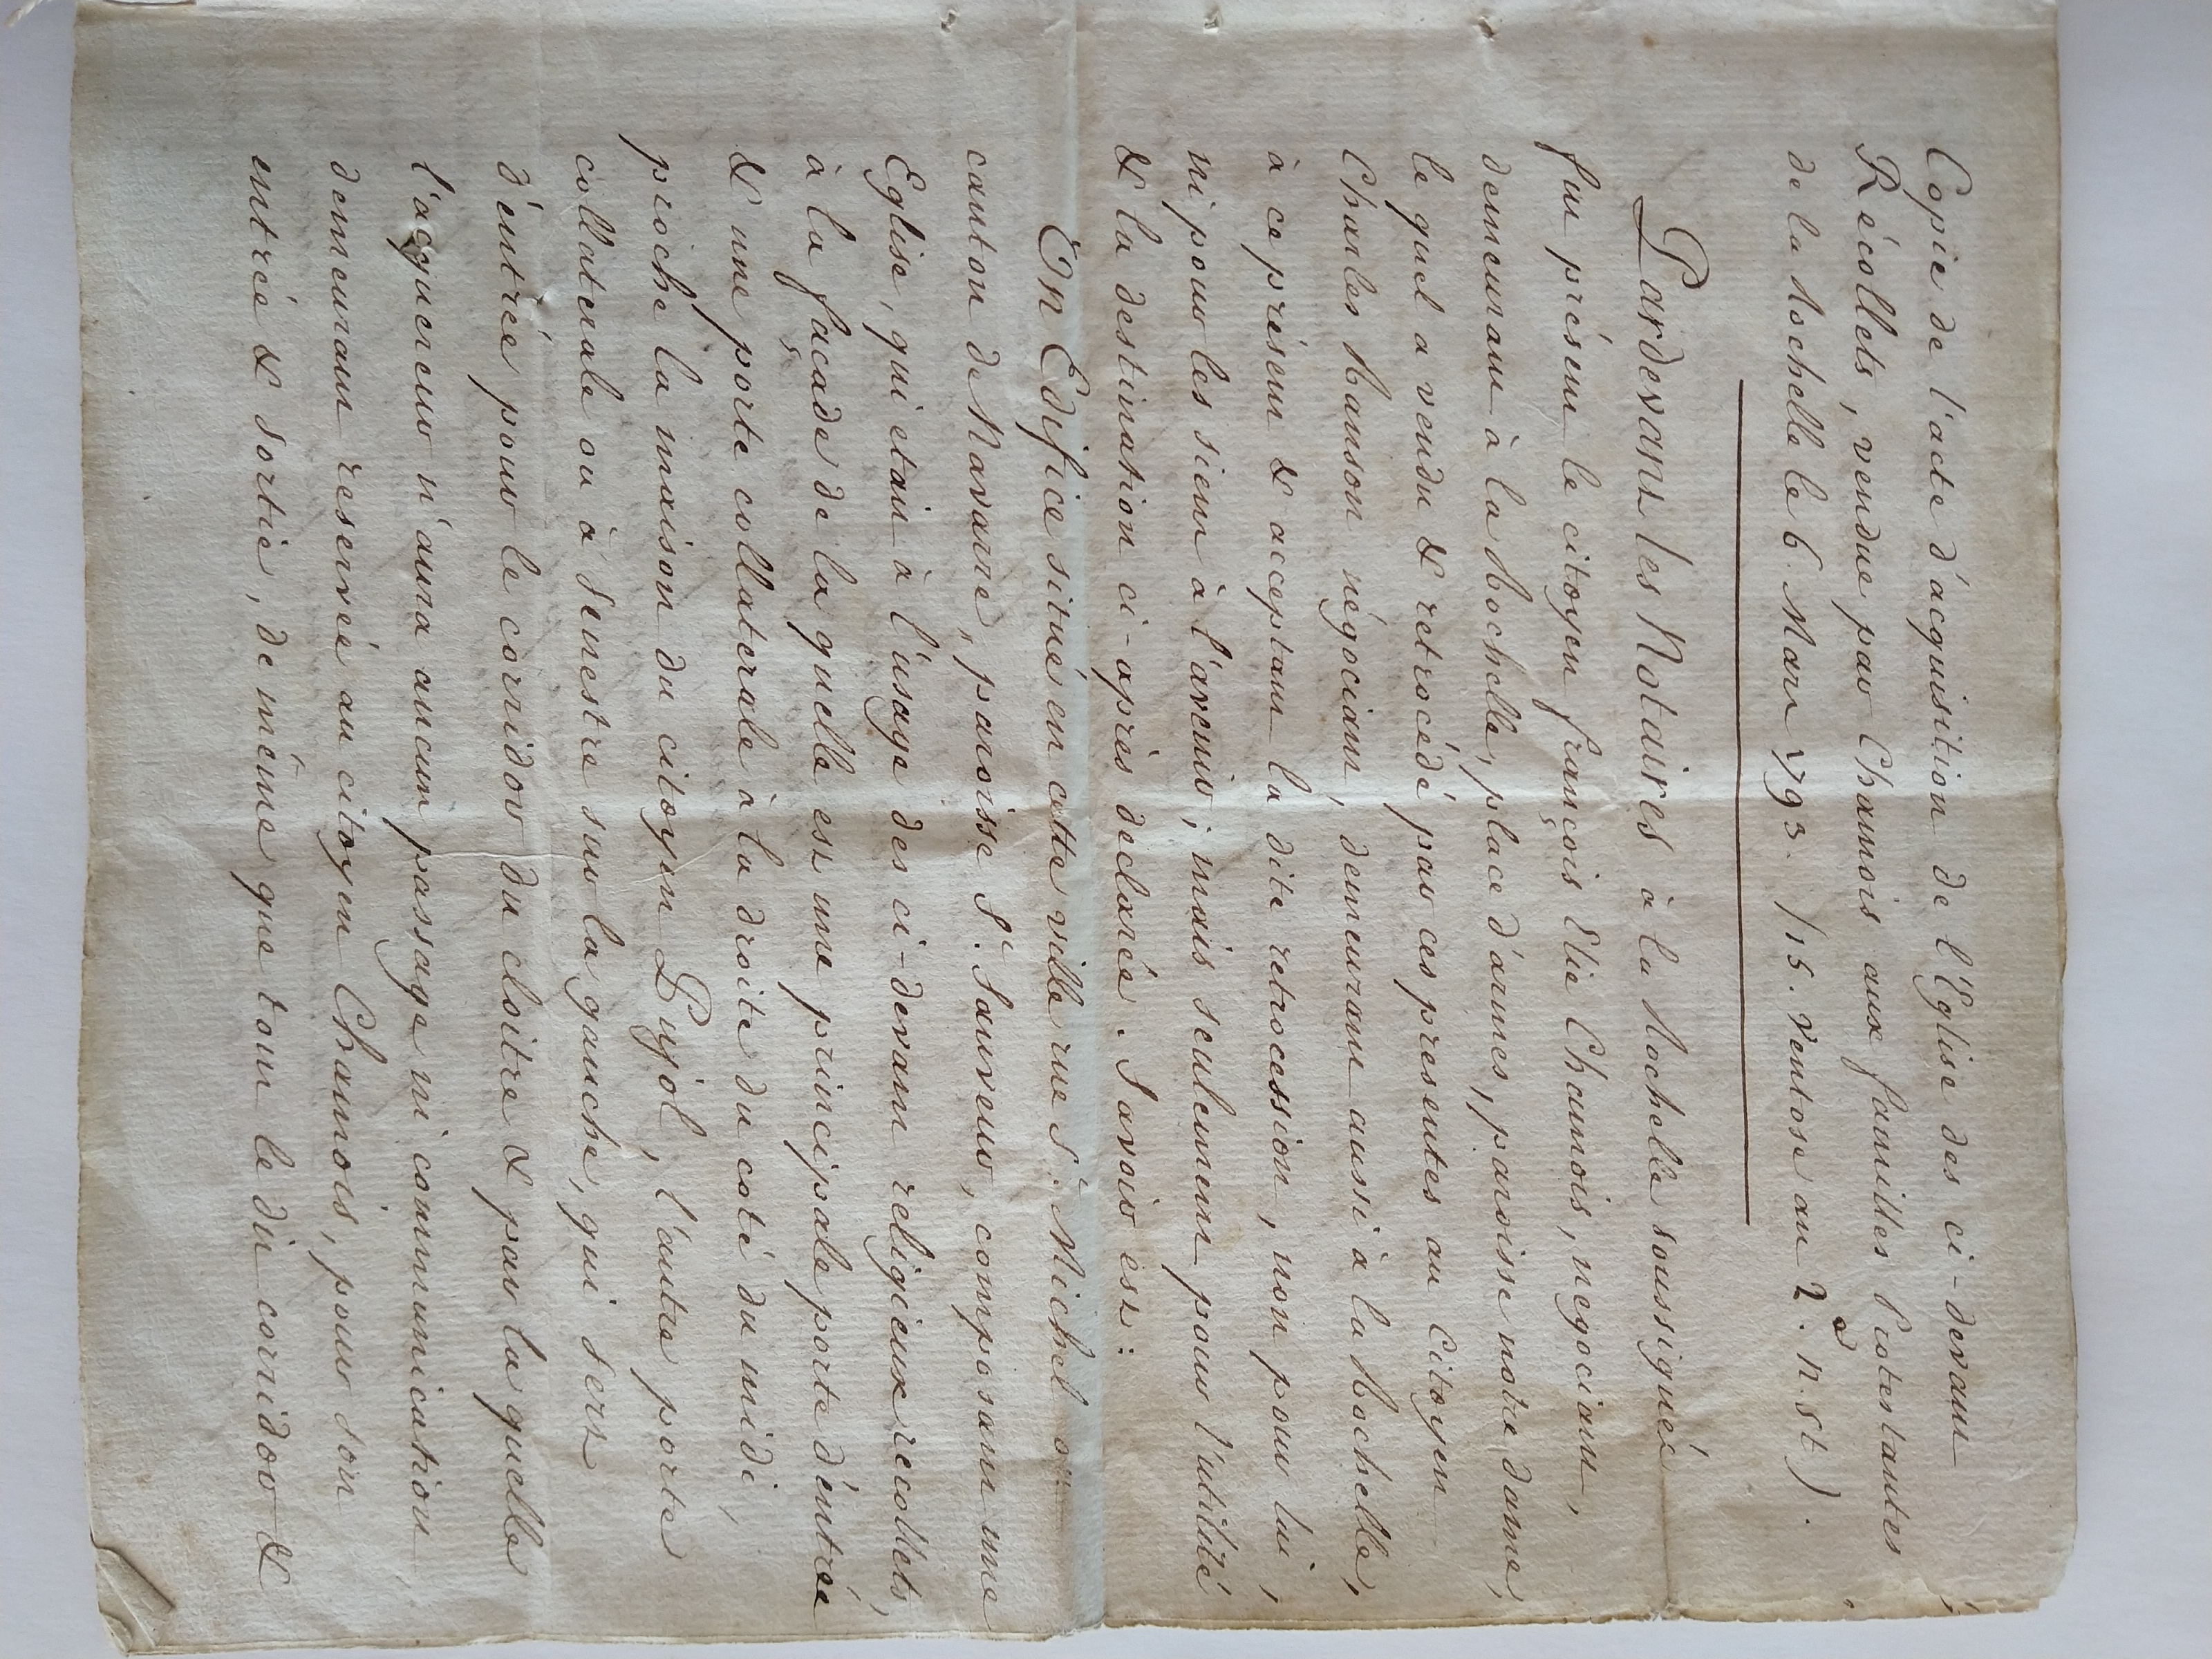 Copie de l'acte d'acquisition de l'Eglise des ci-devant
Récollets, vendue par Chamois aux familles Protestantes
de la Rochelle le 6. Mars 1793. /15. Ventose an 2.d n. st).
Pardevant les Notaires à la Rochelle soussignés
fut présent le citoyen françois Elie Chamois, negociant,
demeurant à la Rochelle, place d'armes, paroisse notre dame,
le quel a vendu & retrocédé par ces presentes au Citoyen
Charles Ranson négociant, demeurant aussi à la Rochelle,
à ce présent & acceptant la dite retrocession, non pour lui,
ni pour les siens à l'avenir, mais seulement pour l'utilité
& la destination ci-après declarée. Savoir est:
Un Edifice situé en cette ville rue St. Michel ou
canton de Navarre, paroisse St. Sauveur, composant une
Eglise, qui etait à l'usage des ci-devant religieux recollets,
à la façade de la quelle est une principale porte d'entrée
& une porte collaterale à la droite du coté du midi,
proche la maison du citoyen Pujol, l'autre porte
collaterale ou à senestre sur la gauche, qui sert
d'entrée pour le corridor du cloitre & par la quelle
l'acquereur n'aura aucun passage ni communication
demeurant reservée au citoyen Chamois, pour son
entrée & sortie, de même que tout le dit corridor &